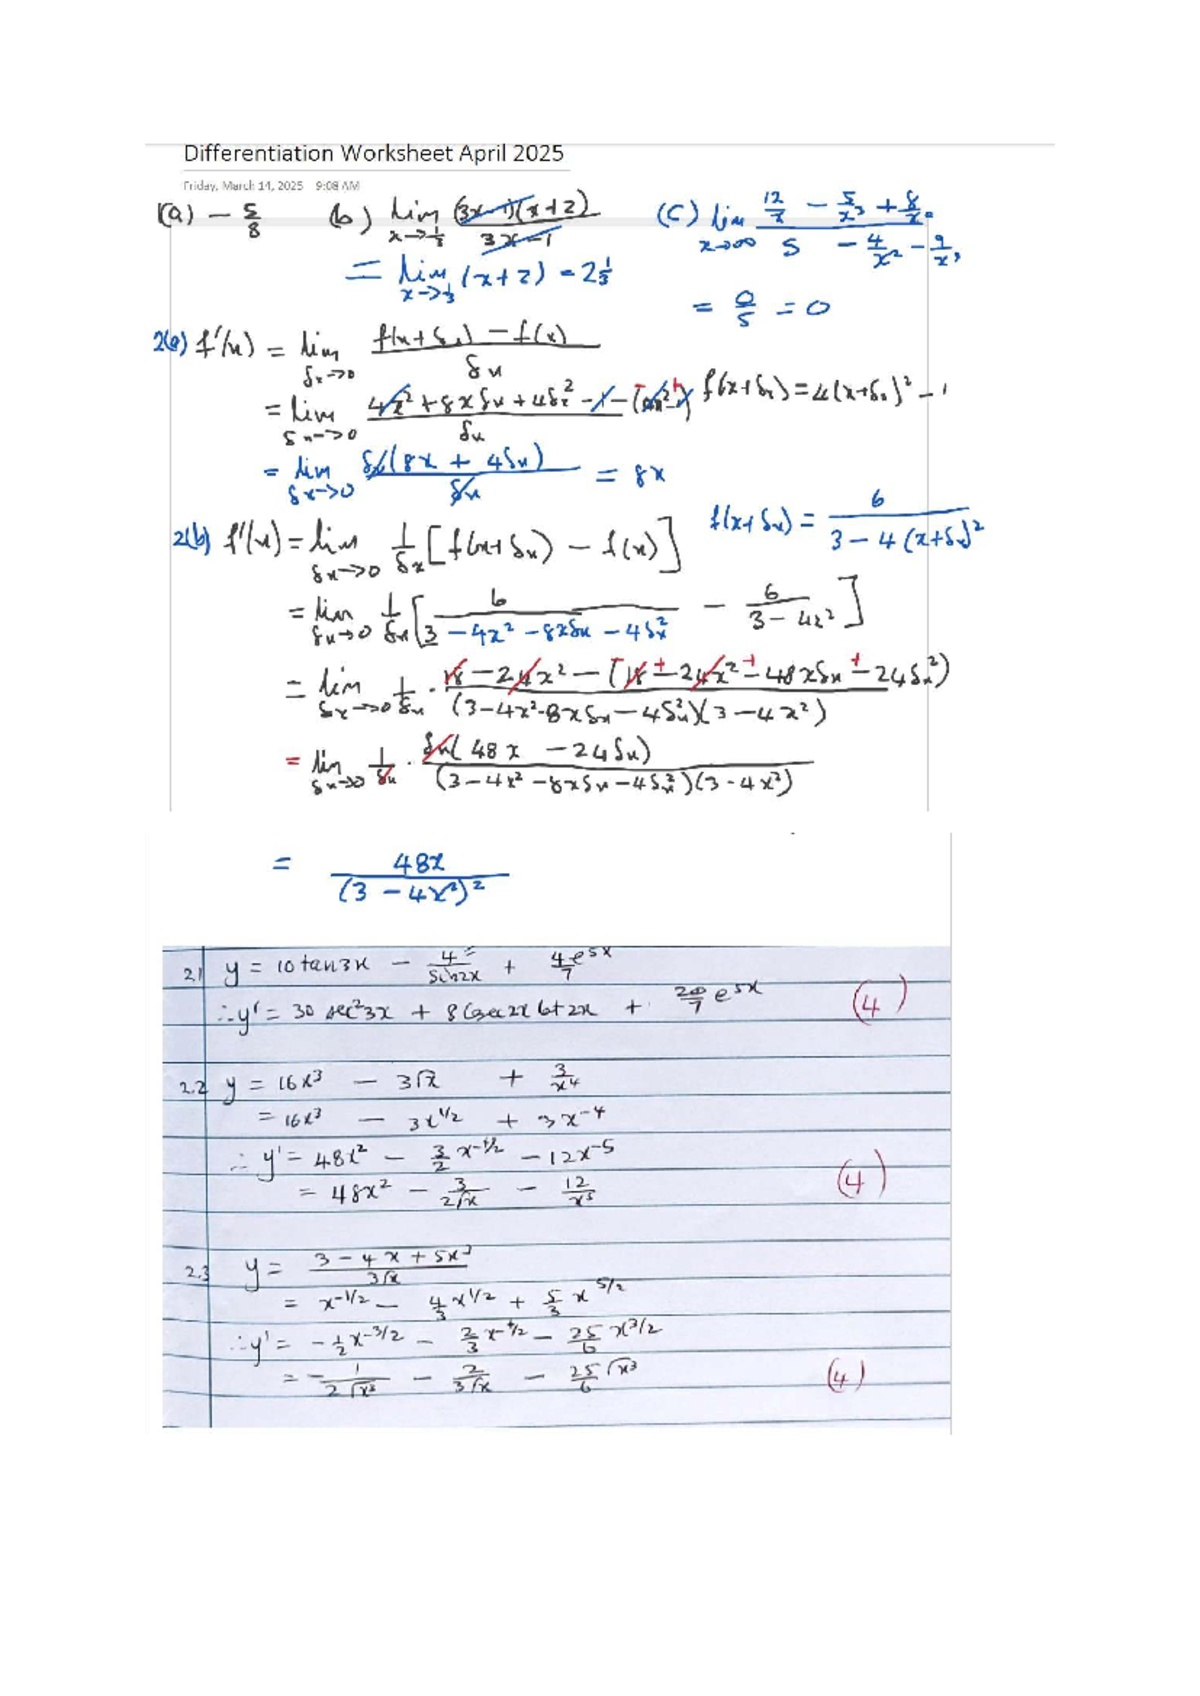 Differentiation Worksheet April 2025
Friday, March 14, 2025 9:08 AM
1(a) - 5/8 (b) lim x→1/3 (3x-1)(x+2) / 3x-1 (c) lim x→∞ 12/x - 5/x³ + 8/x⁶ / 5 - 4/x² - 9/x³
= lim x→1/3 (x+2) = 2 1/3
= 0/5 = 0
2(a) f'(x) = lim δx→0 f(x+δx) - f(x) / δx
= lim δx→0 4x² + 8xδx + 4δx² - 1 - [4x² - 1] / δx f(x+δx) = 4(x+δx)² - 1
= lim δx→0 δx(8x + 4δx) / δx = 8x
2(b) f'(x) = lim δx→0 1/δx [f(x+δx) - f(x)] f(x+δx) = 6 / 3 - 4(x+δx)²
= lim δx→0 1/δx [6 / 3 - 4x² - 8xδx - 4δx² - 6 / 3 - 4x²]
= lim δx→0 1/δx . 18 - 24x² - [18 - 24x² - 48xδx - 24δx²) / (3-4x²-8xδx-4δx²)(3-4x²)
= lim δx→0 1/δx . δx(48x - 24δx) / (3-4x²-8xδx-4δx²)(3-4x²)
= 48x / (3 - 4x²)²
2.1 y = 10tan3x - 4/sin2x + 4/7 e^5x
∴y' = 30 sec²3x + 8Cosec2x Cot2x + 20/7 e^5x (4)
2.2 y = 16x³ - 3√x + 3/x⁴
= 16x³ - 3x^1/2 + 3x^-4
∴ y' = 48x² - 3/2 x^-1/2 - 12x^-5
= 48x² - 3/2√x - 12/x⁵ (4)
2.3 y = 3 - 4x + 5x³ / 3√x
= x^-1/2 - 4/3 x^1/2 + 5/3 x^5/2
∴y' = -1/2 x^-3/2 - 2/3 x^-1/2 - 25/6 x^3/2
= - 1/2√x³ - 2/3√x - 25/6 √x³ (4)